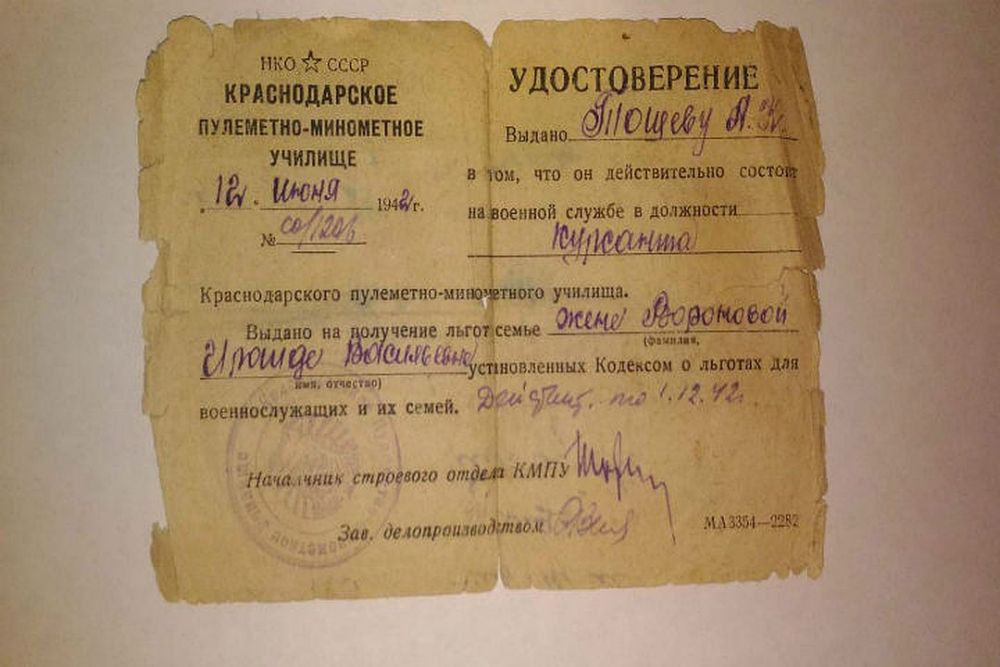 НКО СССР
КРАСНОДАРСКОЕ
ПУЛЕМЕТНО-МИНОМЕТНОЕ
УЧИЛИЩЕ
12. Июня 1942г.
№
УДОСТОВЕРЕНИЕ
Выдано Тощеву
в том, что он действительно состоит
на военной службе в должности
Курсанта
Краснодарского пулеметно-минометного училища.
Выдано на получение льгот семье жене Вороновой
(фамилия,
Ираиде Васильевне установленных Кодексом о льготах для
имя, отчество)
военнослужащих и их семей. Действит. по 1.12.42г.
Начальник строевого отдела КМПУ
Зав. делопроизводством
МА3354—2282